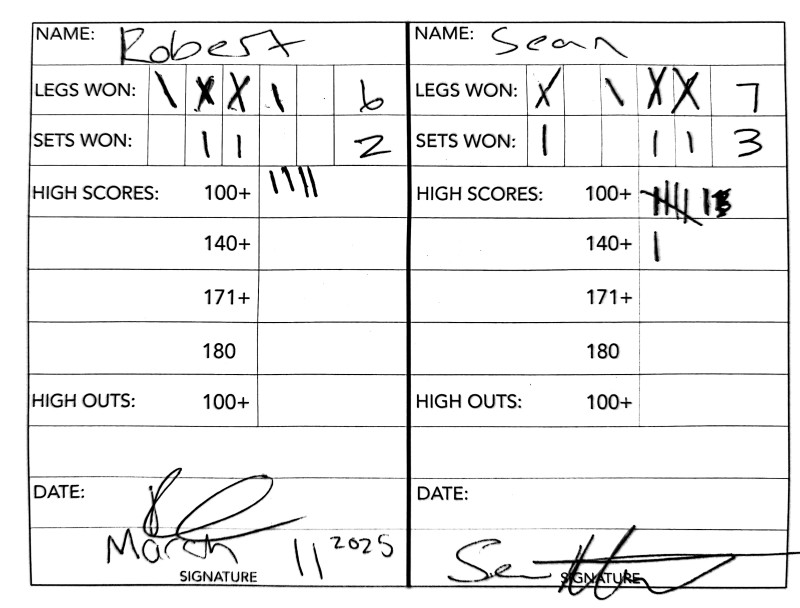 NAME: Robert
LEGS WON: \ X X \ 6
SETS WON: | | 2
HIGH SCORES: 100+ ||||
140+
171+
180
HIGH OUTS: 100+
DATE:
March 11 2025
SIGNATURE
NAME: Sean
LEGS WON: X \ X X 7
SETS WON: | | | 3
HIGH SCORES: 100+
140+ |
171+
180
HIGH OUTS: 100+
DATE:
SIGNATURE